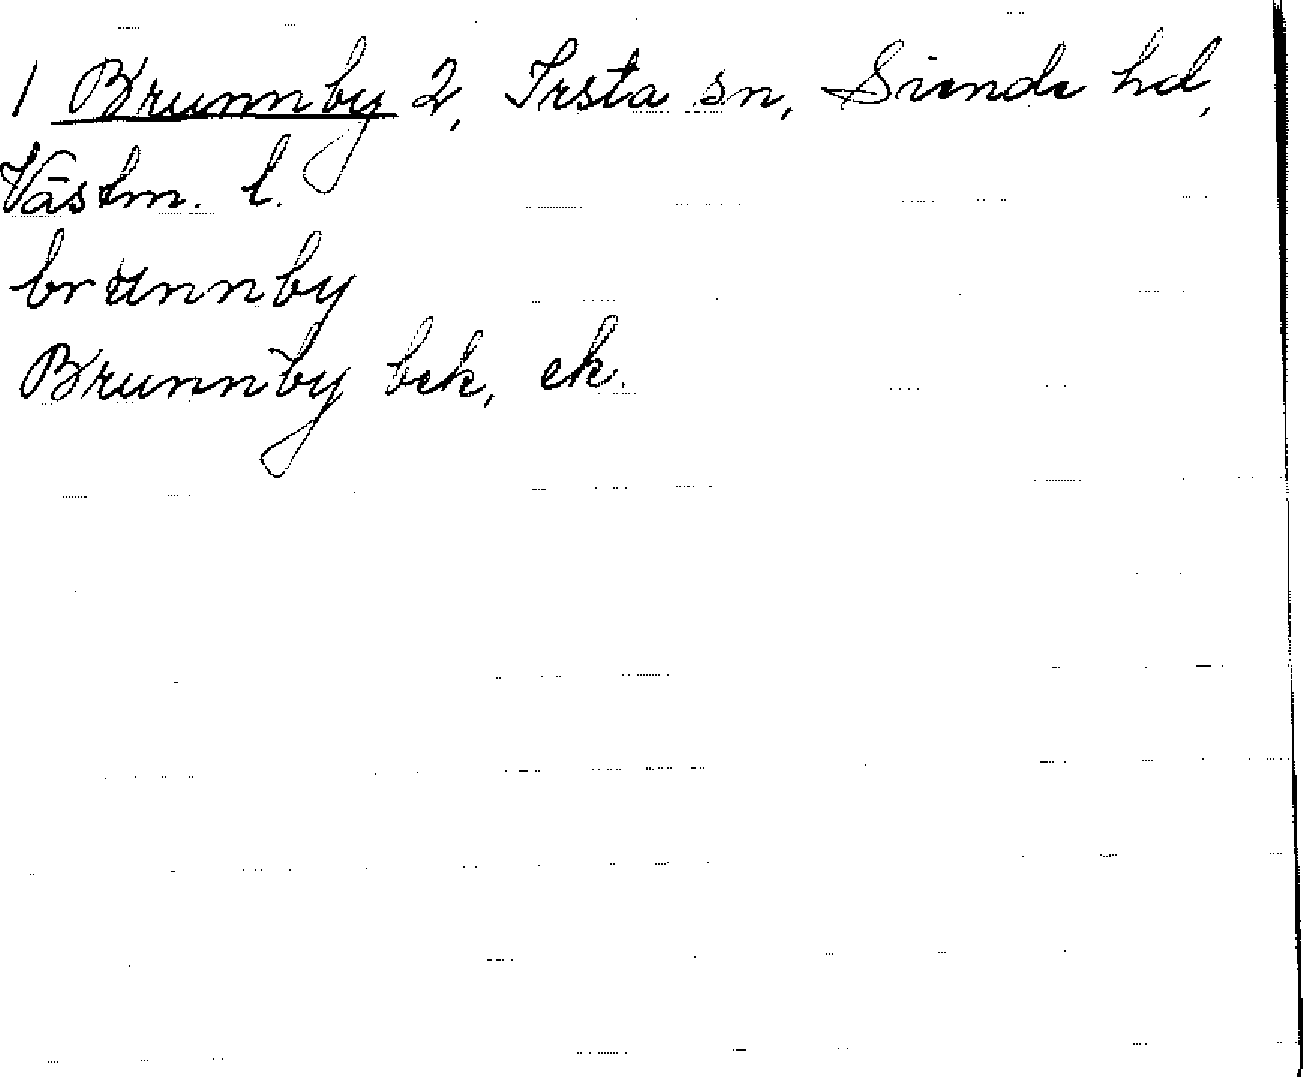 1 Brunnby 2, Irsta sn, Siende hd,
Västm. l.
brunnby
Brunnby bek, ek.